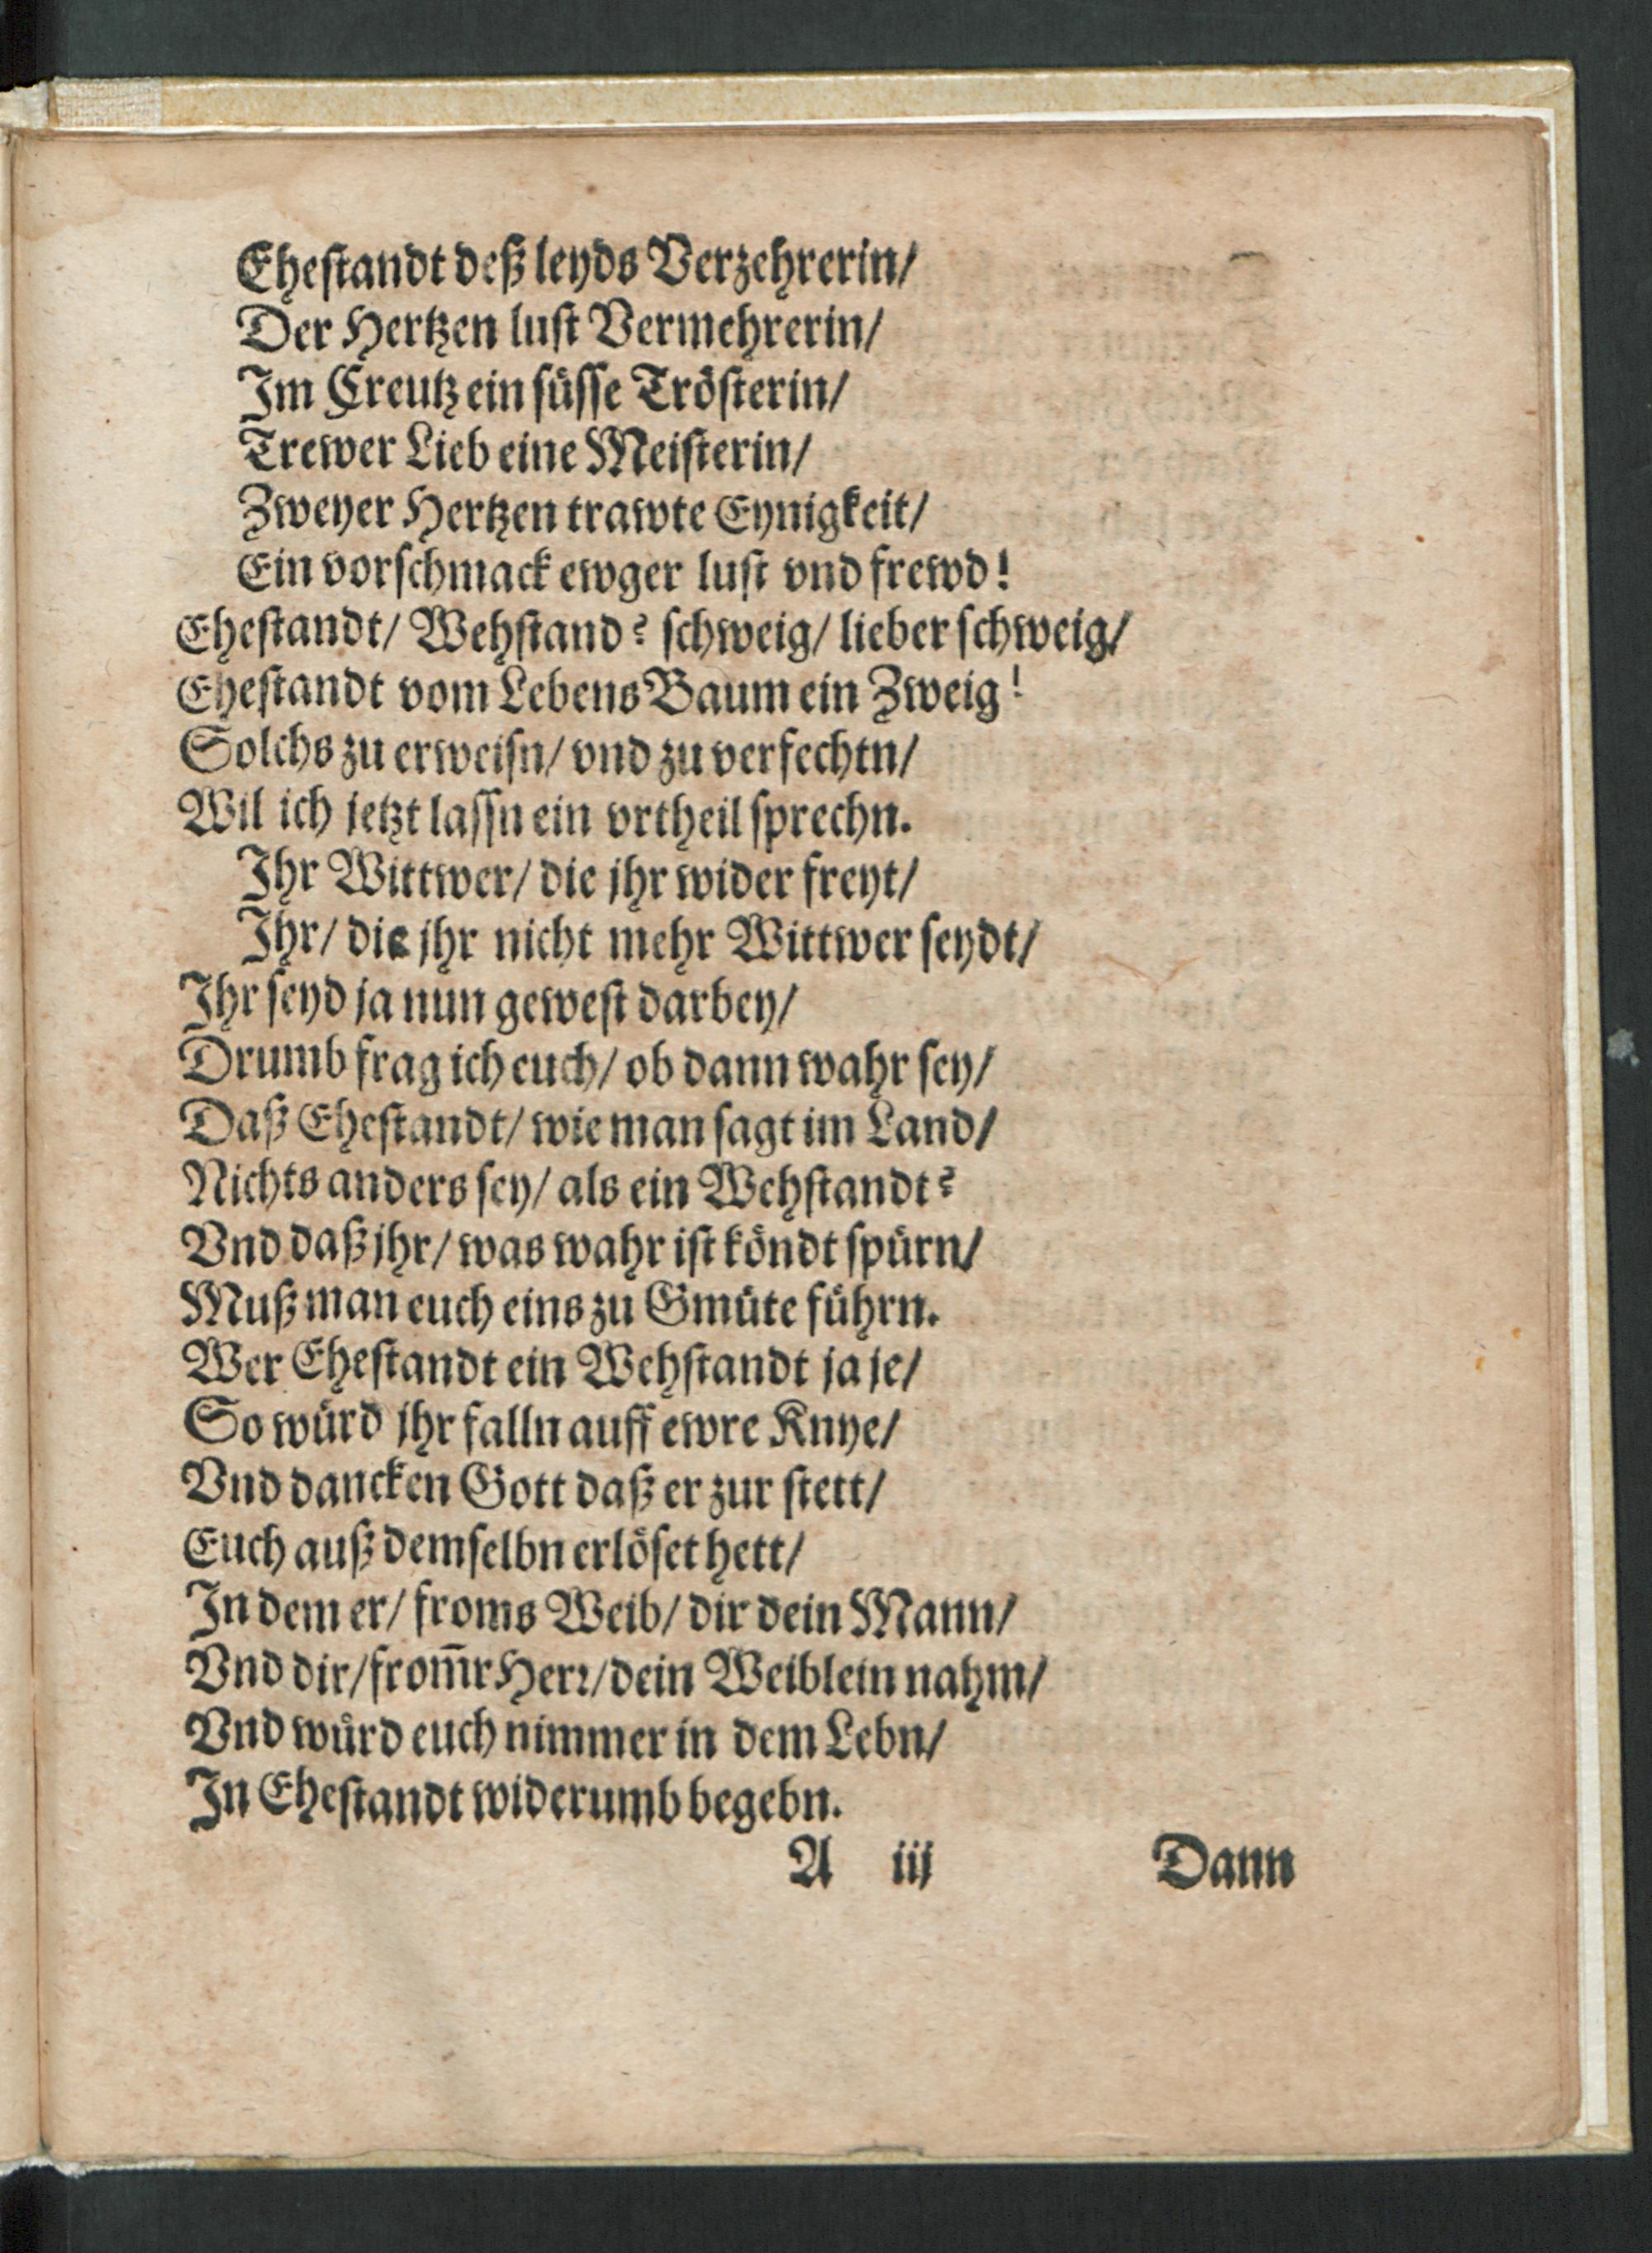 Eheſtandt deß leyds Verzehrerin/
Der Hertzen luſt Vermehrerin/
Im Creutz ein ſüſſe Tröſterin/
Trewer Lieb eine Meiſterin/
Zweyer Hertzen trawte Eynigkeit/
Ein vorſchmack ewger luſt vnd frewd!
Eheſtandt/ Wehſtand? ſchweig/ lieber ſchweig/
Eheſtandt vom Lebens Baum ein Zweig!
Solchs zu erweiſn/ vnd zu verfechtn/
Wil ich jetzt laſſn ein vrtheil ſprechn.
Ihr Wittwer/ die jhr wider freyt/
Ihr/ die jhr nicht mehr Wittwer ſeydt/
Ihr ſeyd ja nun geweſt darbey/
Drumb frag ich euch/ ob dann wahr ſey/
Daß Eheſtandt/ wie man ſagt im Land/
Nichts anders ſey/ als ein Wehſtandt?
Vnd daß jhr/ was wahr iſt köndt ſpürn/
Muß man euch eins zu Gmüte führn.
Wer Eheſtandt ein Wehſtandt ja je/
So würd jhr falln auff ewre Knye/
Vnd dancken Gott daß er zur ſtett/
Euch auß demſelbn erlöſet hett/
In dem er/ froms Weib/ dir dein Mann/
Vnd dir/ from̄r Herꝛ/ dein Weiblein nahm/
Vnd würd euch nimmer in dem Lebn/
In Eheſtandt widerumb begebn.
A iij Dann